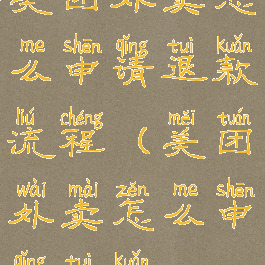 美团外卖怎
me shēn qǐng tuì kuǎn
么申请退款
liú chéng měi tuán
流程（美团
wài mài zěn me shēn
外卖怎么申
qǐng tuì kuǎn